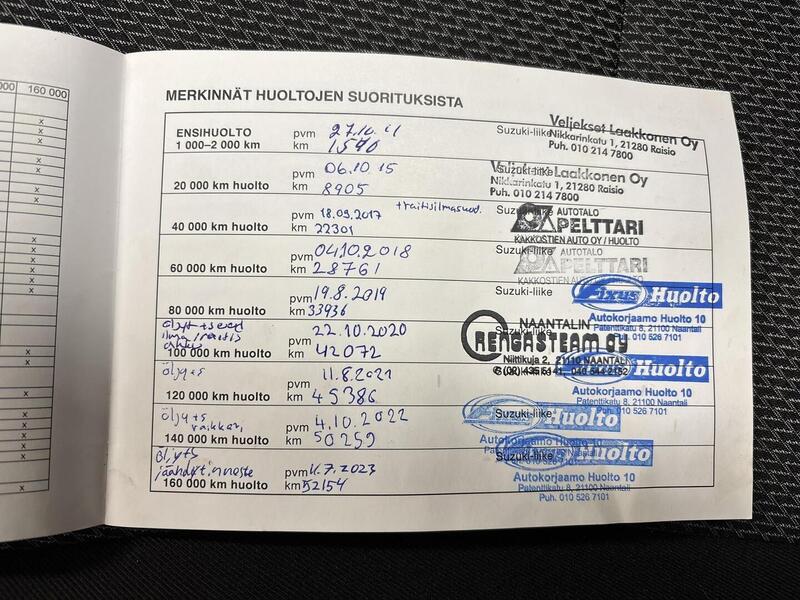 000 160 000
MERKINNÄT HUOLTOJEN SUORITUKSISTA
ENSIHUOLTO pvm 27.10.11 Suzuki-liike Veljekset Laakkonen Oy
Nikkarinkatu 1, 21280 Raisio
1 000–2 000 km km 1540 Puh. 010 214 7800
pvm 06.10.15 Suzuki-liike Veljekset Laakkonen Oy
Nikkarinkatu 1, 21280 Raisio
20 000 km huolto km 8905 Puh. 010 214 7800
pvm 18.09.2017 +raitisilmasuod. Suzuki-liike AUTOTALO
40 000 km huolto km 22301 PELTTARI
KAKKOSTIEN AUTO OY / HUOLTO
pvm 04.10.2018 Suzuki-liike AUTOTALO
60 000 km huolto km 28761 PELTTARI
KAKKOSTIEN AUTO OY / HUOLTO
pvm 19.8.2019 Suzuki-liike Fixus Huolto
80 000 km huolto km 33936 Autokorjaamo Huolto 10
Patenttikatu 8, 21100 Naantali
Puh. 010 526 7101
öljyt+s
pvm 22.10.2020 Suzuki-liike NAANTALIN
RENGASTEAM OY
100 000 km huolto km 42072 Niittikuja 2, 21110 NAANTALI
öljy+s pvm 11.8.2021 Suzuki-liike Huolto
120 000 km huolto km 45386 Autokorjaamo Huolto 10
Patenttikatu 8, 21100 Naantali
Puh. 010 526 7101
öljyt+s pvm 4.10.2022 Suzuki-liike Fixus Huolto
140 000 km huolto km 50259 Autokorjaamo Huolto 10
öljyt+s
jäähdytinneste pvm 11.7.2023 Suzuki-liike Huolto
160 000 km huolto km 52154 Autokorjaamo Huolto 10
Patenttikatu 8, 21100 Naantali
Puh. 010 526 7101